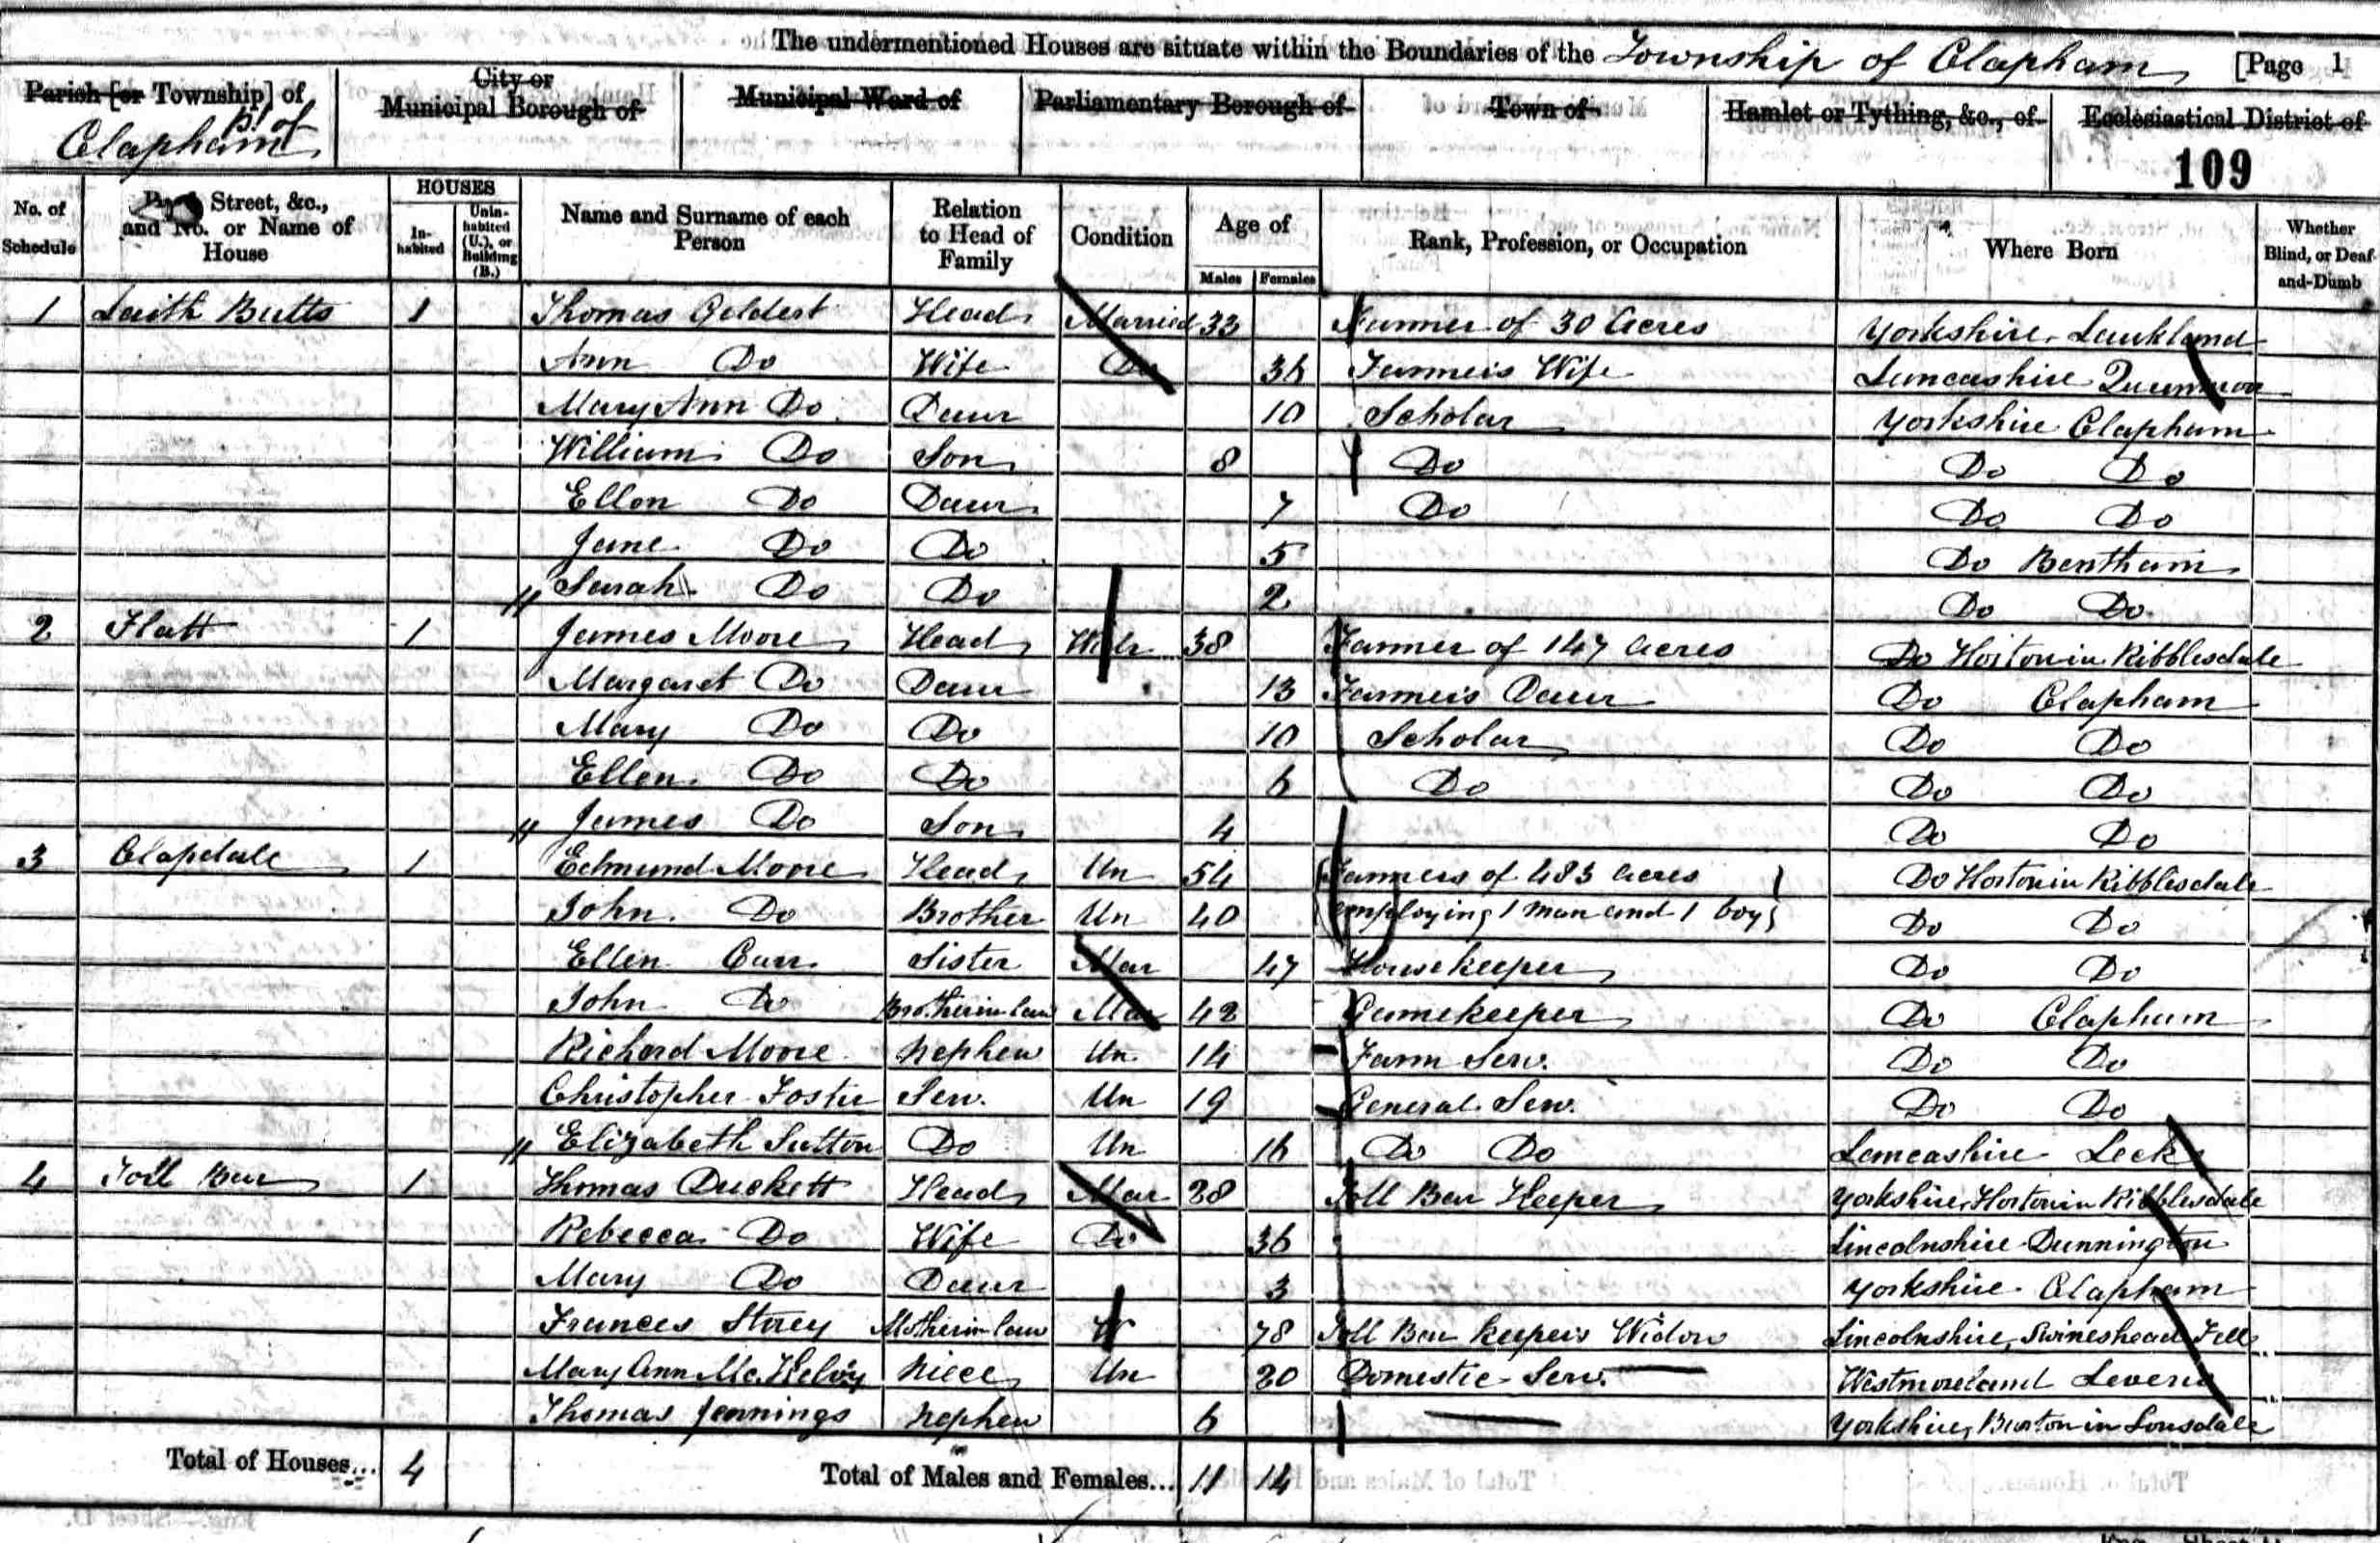 The undermentioned Houses are situate within the Boundaries of the Township of Clapham [Page 1
Parish [or Township] of Pt of Clapham
City or Municipal Borough of
Municipal Ward of
Parliamentary Borough of
Town of
Hamlet or Tything, &c., of
Ecclesiastical District of
109
No. of Schedule
Street, &c., and No. or Name of House
HOUSES
In-habited
Unin-habited (U.), or Building (B.)
Name and Surname of each Person
Relation to Head of Family
Condition
Age of
Males Females
Rank, Profession, or Occupation
Where Born
Whether Blind, or Deaf-and-Dumb
1 Laith Butts 1 Thomas Geldert Head Married 33 Farmer of 30 Acres Yorkshire Laukland
Ann Do Wife Do 36 Farmer's Wife Lancashire
Mary Ann Do Daur 10 Scholar Yorkshire Clapham
William Do Son 8 Do Do Do
Ellen Do Daur 7 Do Do Do
Jane Do Do 5 Do Bentham
" Sarah Do Do 2 Do Do
2 Flatt 1 James Moore Head Widr 38 Farmer of 147 Acres Do Horton in Ribblesdale
Margaret Do Daur 13 Farmer's Daur Do Clapham
Mary Do Do 10 Scholar Do Do
Ellen Do Do 6 Do Do Do
" James Do Son 4 Do Do
3 Clapdale 1 Edmund Moore Head Un 54 Farmers of 483 Acres Do Horton in Ribblesdale
John Do Brother Un 40 employing 1 man and 1 boy Do Do
Ellen Carr Sister Mar 47 Housekeeper Do Do
John Do Brother in law Mar 42 Gamekeeper Do Clapham
Richard Moore Nephew Un 14 Farm Serv. Do Do
Christopher Foster Serv. Un 19 General Serv. Do Do
" Elizabeth Sutton Do Un 16 Do Do Lancashire Leck
4 Toll Bar 1 Thomas Duckett Head Mar 28 Toll Bar Keeper Yorkshire, Horton in Ribblesdale
Rebecca Do Wife Do 36 Lincolnshire Dunnington
Mary Do Daur 3 Yorkshire Clapham
Frances Storey Mother in law W 78 Toll Bar keeper's Widow Lincolnshire, Swineshead Fell
Mary Ann McKelvy Niece Un 20 Domestic Serv. Westmoreland Levens
Thomas Jennings Nephew 6 Yorkshire, Burton in Lonsdale
Total of Houses... 4
Total of Males and Females... 11 14